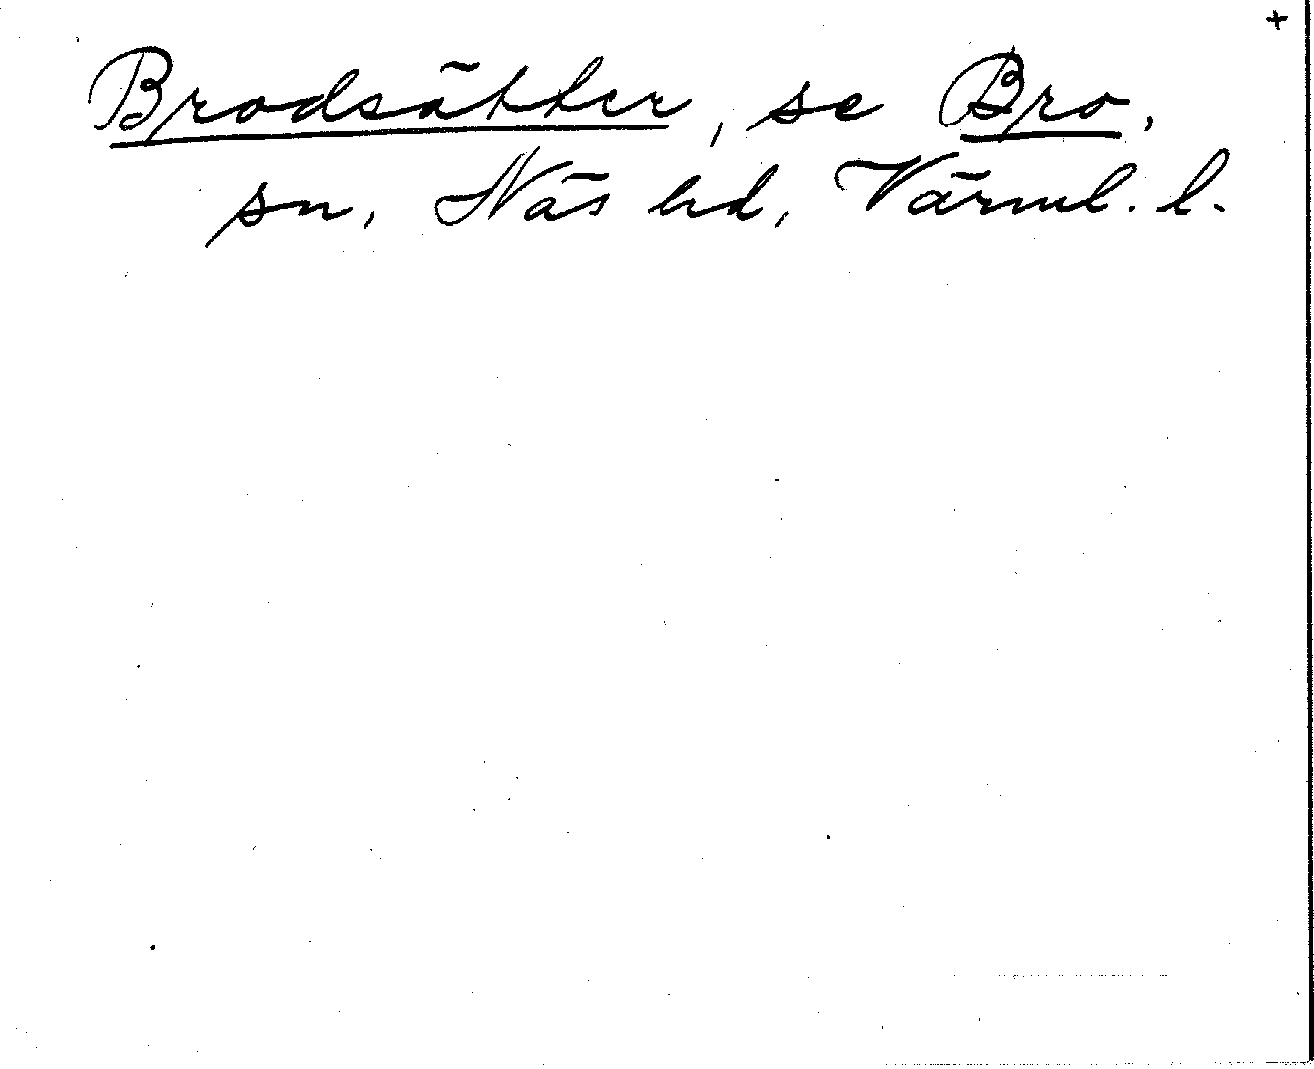 +
Brodsätter, se Bro,
sn, Näs hd, Värml. l.